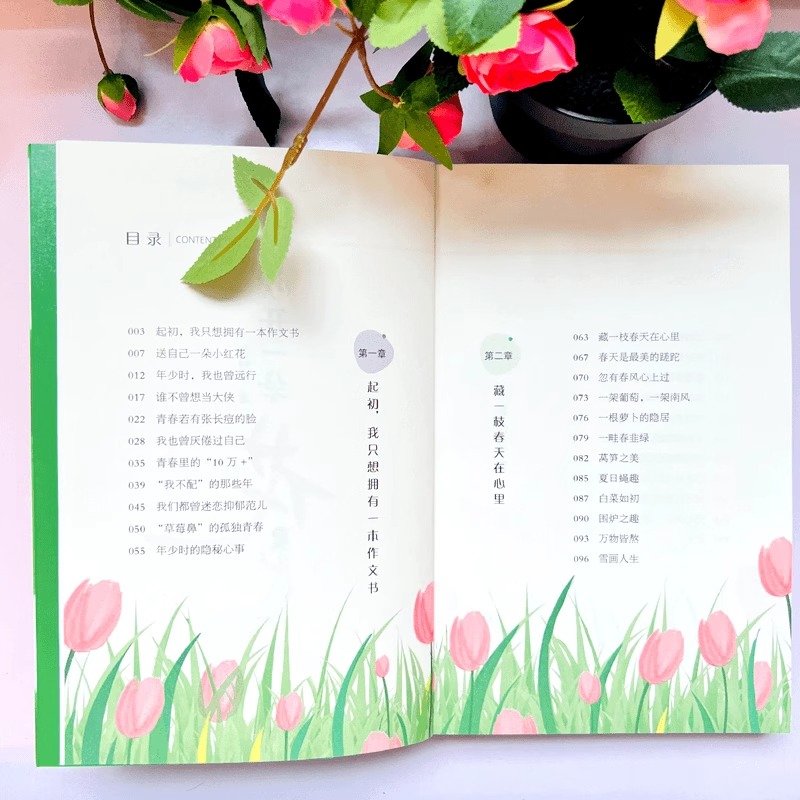 目录 | CONTENT
第一章
起初,我只想拥有一本作文书
003 起初,我只想拥有一本作文书
007 送自己一朵小红花
012 年少时,我也曾远行
017 谁不曾想当大侠
022 青春若有张长痘的脸
028 我也曾厌倦过自己
035 青春里的“10万+”
039 “我不配”的那些年
045 我们都曾迷恋抑郁范儿
050 “草莓鼻”的孤独青春
055 年少时的隐秘心事
第二章
藏一枝春天在心里
063 藏一枝春天在心里
067 春天是最美的蹉跎
070 忽有春风心上过
073 一架葡萄,一架南风
076 一根萝卜的隐居
079 一畦春韭绿
082 莴笋之美
085 夏日蝇趣
087 白菜如初
090 围炉之趣
093 万物皆熬
096 雪画人生